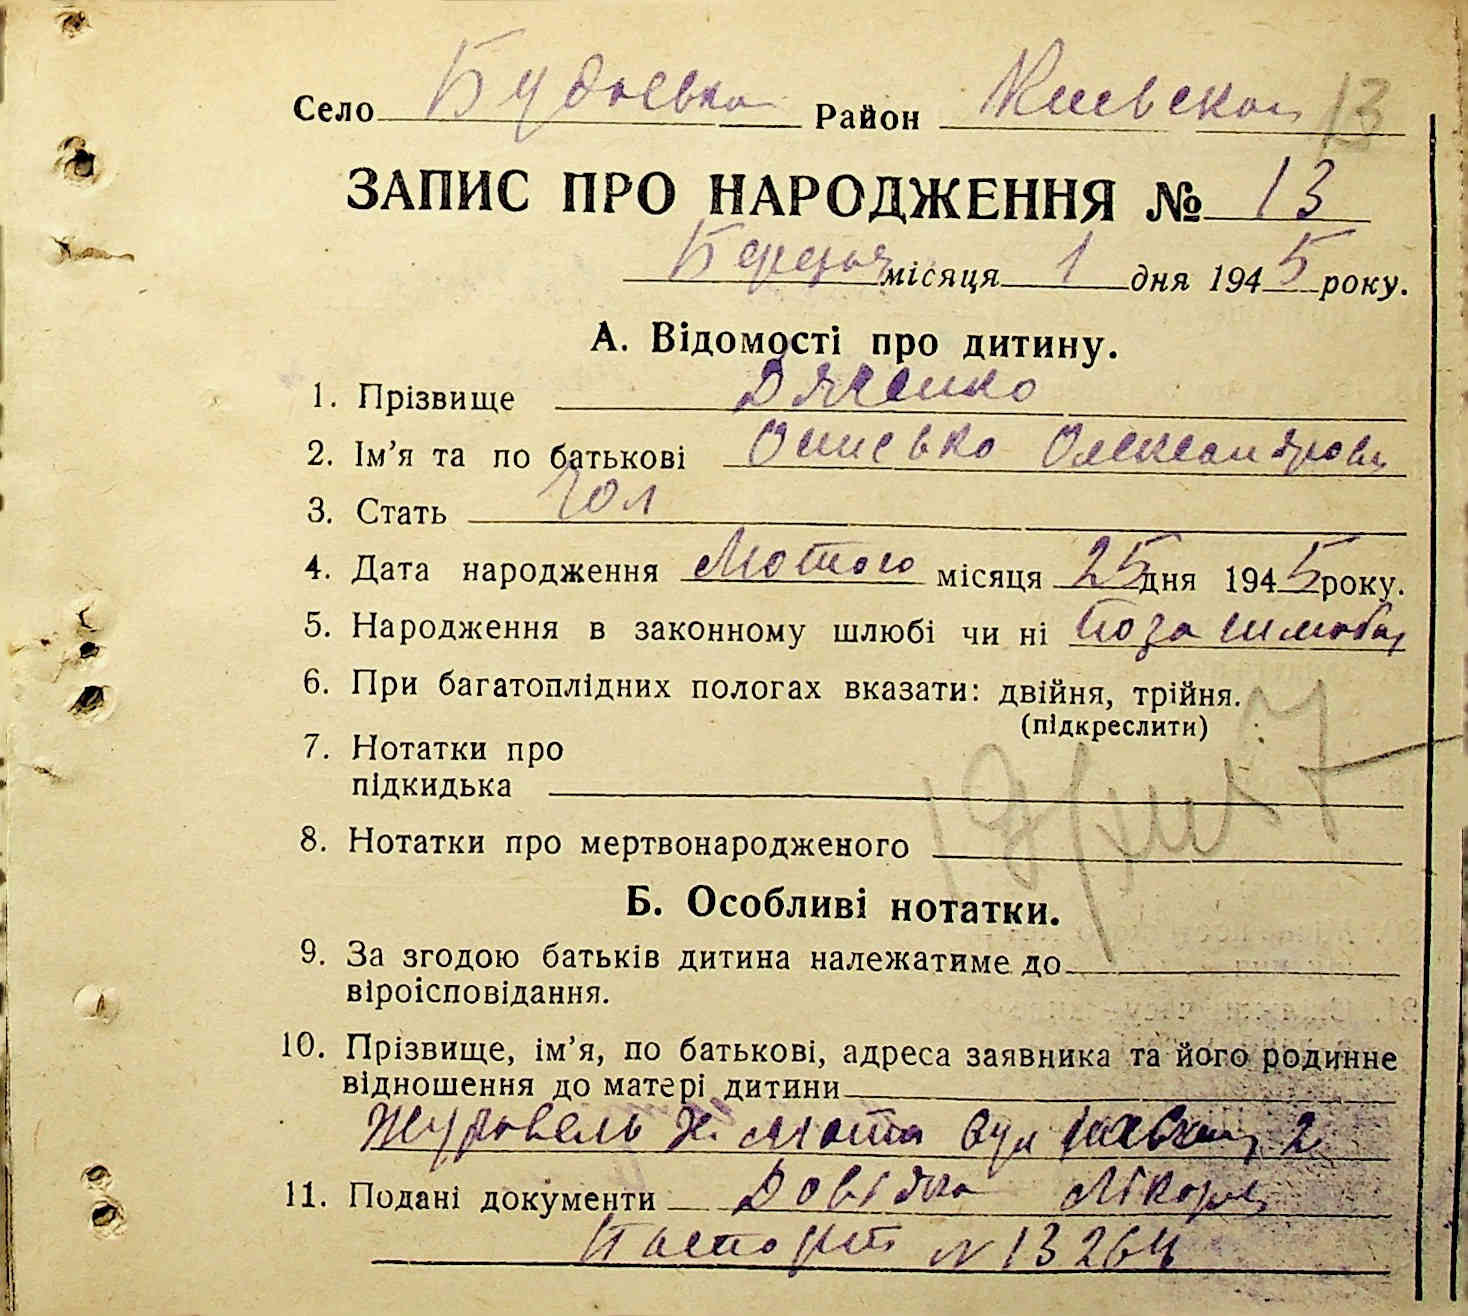 Село Будаевка Район Киевский 13
ЗАПИС ПРО НАРОДЖЕННЯ № 13
Березня місяця 1 дня 1945 року.
А. Відомості про дитину.
1. Прізвище Дяченко
2. Ім'я та по батькові Олександров
3. Стать Чол
4. Дата народження Лютого місяця 25 дня 1945 року.
5. Народження в законному шлюбі чи ні Поза шлюбом
6. При багатоплідних пологах вказати: двійня, трійня.
(підкреслити)
7. Нотатки про
підкидька
8. Нотатки про мертвонародженого
Б. Особливі нотатки.
9. За згодою батьків дитина належатиме до
віроісповідання.
10. Прізвище, ім'я, по батькові, адреса заявника та його родинне
відношення до матері дитини
Журавель Х. мати вул 2
11. Подані документи Довідка Лікаря
Паспорт N 13264